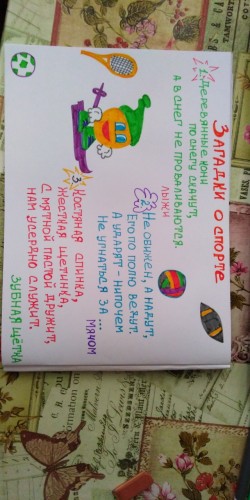 Загадки о спорте
1. Деревянные кони
по снегу скачут,
а в снег не проваливаются.
лыжи
2. Не обижен, а надут,
Его по полю ведут.
А ударят - нипочём
Не угнаться за ... мячом
3. Костяная спинка,
Жесткая щетинка,
С мятной пастой дружит,
Нам усердно служит.
Зубная щётка